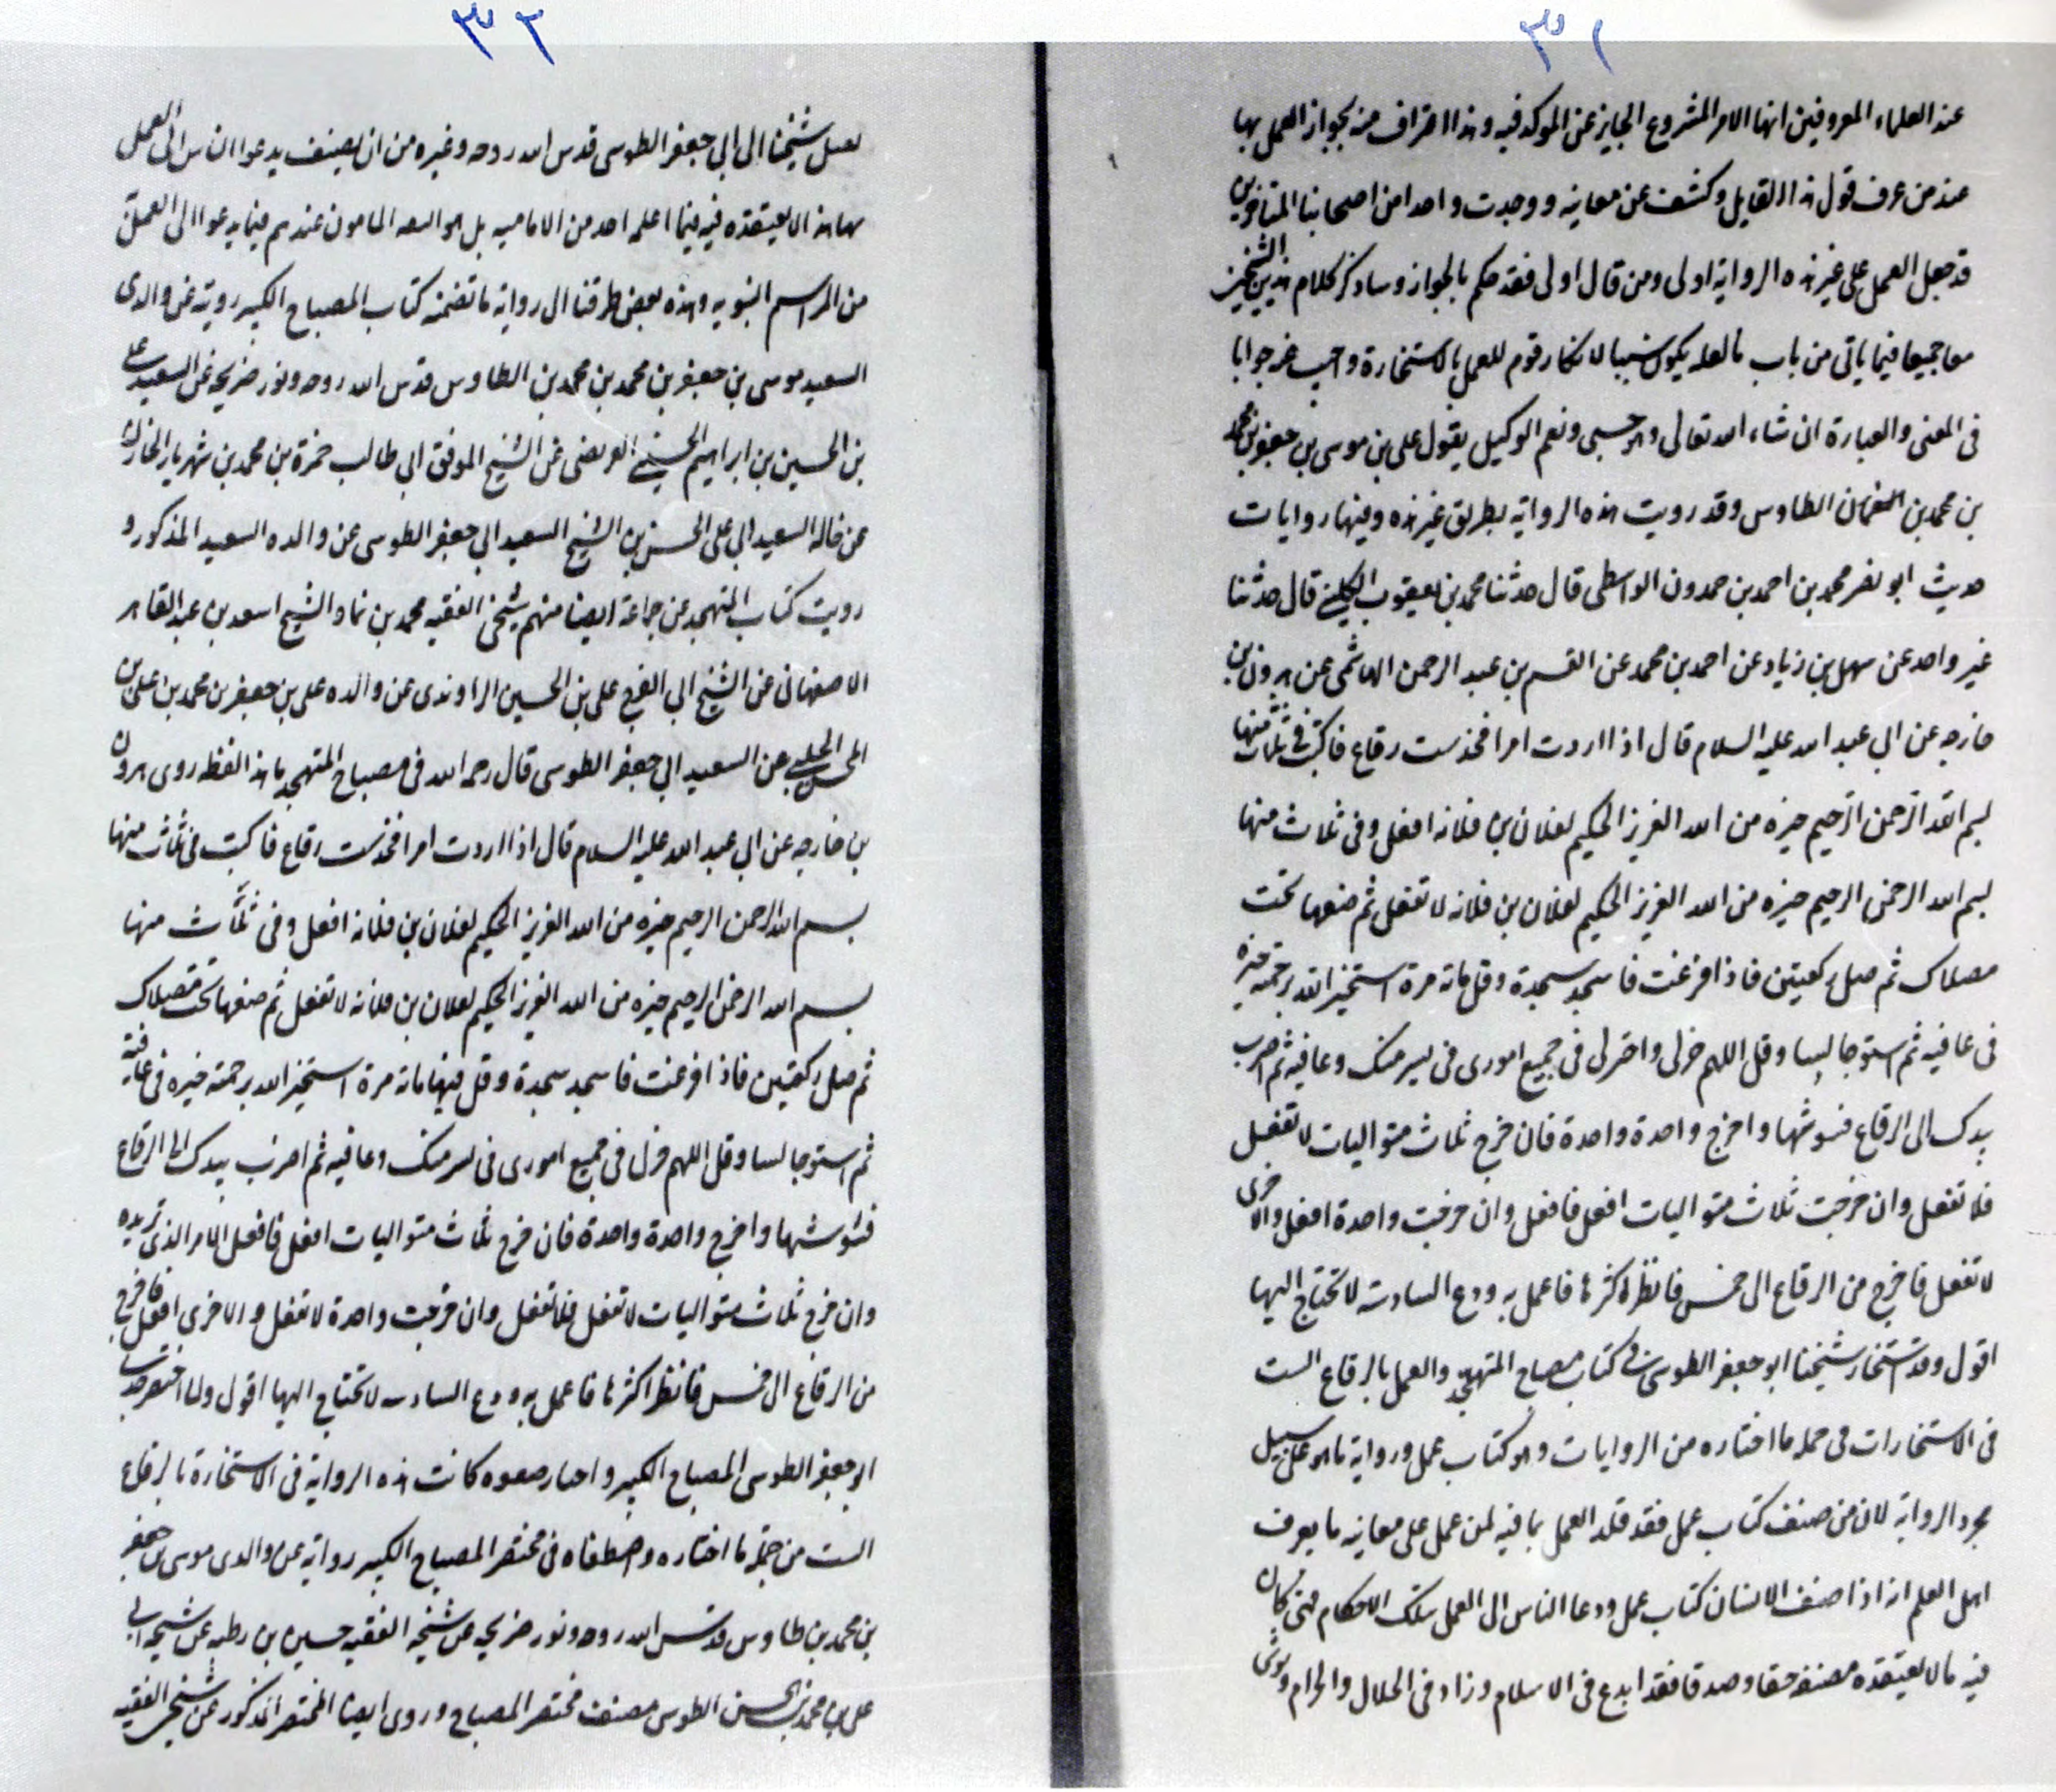 ٣١
عند العلماء المعروفين انها الامر المشروع الجايز عن الموكد فيه وهذا اعتراف منه بجواز العمل بها
عند من عرف قول هذا القايل وكشف عن معانيه ووجدت واحدا من اصحابنا المتاخرين
قد جعل العمل على غير هذه الرواية اولى ومن قال اولى فقد حكم بالجواز وساذكر كلام هذين الشيخين
معا جميعا فيما ياتى من باب مالعله يكون سببا لانكار قوم للعمل بالاستخارة واجيب عنه جوابا
فى المعنى والعبارة ان شاء الله تعالى وهو حسبى ونعم الوكيل يقول على بن موسى بن جعفر بن محمد
بن محمد بن الطاوس وقد رويت هذه الرواية بطريق غير هذه وفيها روايات
حديث ابو نصر محمد بن احمد بن حمدون الواسطى قال حدثنا محمد بن يعقوب الكلينى قال حدثنا
غير واحد عن سهل بن زياد عن احمد بن محمد عن القسم بن عبد الرحمن الهاشمى عن هرون بن
خارجه عن ابى عبد الله عليه السلام قال اذا اردت امرا فخذ ست رقاع فاكتب فى ثلاث منها
بسم الله الرحمن الرحيم خيره من الله العزيز الحكيم لفلان بن فلانه افعل وفى ثلاث منها
بسم الله الرحمن الرحيم خيره من الله العزيز الحكيم لفلان بن فلانه لا تفعل ثم ضعها تحت
مصلاك ثم صل ركعتين فاذا فرغت فاسجد سجدة وقل مائة مرة استخير الله برحمته خيره
فى عافيه ثم استو جالسا وقل اللهم خر لى واختر لى فى جميع امورى فى يسر منك وعافيه ثم اضرب
بيدك الى الرقاع فشوشها واخرج واحدة واحدة فان خرج ثلاث متواليات لا تفعل
فلا تفعل وان خرجت ثلاث متواليات افعل فافعل وان خرجت واحدة افعل والاخرى
لا تفعل فاخرج من الرقاع الى خمس فانظر اكثرها فاعمل به ودع السادسة لا تحتاج اليها
اقول وقد استخار شيخنا ابو جعفر الطوسى فى كتاب مصباح المتهجد والعمل بالرقاع الست
فى الاستخارات فى جمله ما اختاره من الروايات وهو كتاب عمل ورواية ما هو على سبيل
مجرد الرواية لان من صنف كتاب عمل فقد قلد العمل بما فيه لمن عمل على معانيه ما يعرف
اهل العلم انه اذا صنف الانسان كتاب عمل ودعا الناس الى العمل بتلك الاحكام فمتى كان
فيه ما لا يعتقده مصنفه حقا وصدقا فقد ابدع فى الاسلام وزاد فى الحلال والحرام
٣٢
شيخنا الى ابى جعفر الطوسى قدس الله روحه وغيره من ان يصنف يدعوا الناس الى العمل
بهذا لا يعتقده فيه فيما اعلمه احد من الاماميه بل هو الثقه المامون عندهم فيما يدعوا الى العمل
من المراسم النبويه وهذه بعض طرقنا الى رواية ما تضمنه كتاب المصباح الكبير رويته عن والدى
السعيد موسى بن جعفر بن محمد بن محمد بن الطاوس قدس الله روحه ونور ضريحه عن السعيد على
بن الحسين بن ابراهيم الحسينى العريضى عن الشيخ الموفق ابى طالب حمزة بن محمد بن شهريار الخازن
عن خاله السعيد ابى على الحسن بن الشيخ السعيد ابى جعفر الطوسى عن والده السعيد المذكور و
رويت كتاب المتهجد عن جماعة ايضا منهم شيخى الفقيه محمد بن نما والشيخ اسعد بن عبد القاهر
الاصفهانى عن الشيخ ابى الفرج على بن الحسين الراوندى عن والده على بن جعفر بن محمد بن على بن
المحسن الحلبى عن السعيد ابى جعفر الطوسى قال رحمه الله فى مصباح المتهجد ما هذا لفظه روى هرون
بن خارجه عن ابى عبد الله عليه السلام قال اذا اردت امرا فخذ ست رقاع فاكتب فى ثلث منها
بسم الله الرحمن الرحيم خيره من الله العزيز الحكيم لفلان بن فلانه افعل وفى ثلث منها
بسم الله الرحمن الرحيم خيره من الله العزيز الحكيم لفلان بن فلانه لا تفعل ثم ضعها تحت مصلاك
ثم صل ركعتين فاذا فرغت فاسجد سجدة وقل فيها مائة مرة استخير الله برحمته خيره فى عافية
ثم استو جالسا وقل اللهم خر لى فى جميع امورى فى يسر منك وعافيه ثم اضرب بيدك الى الرقاع
فشوشها واخرج واحدة واحدة فان خرج ثلث متواليات افعل فافعل الامر الذى تريده
وان خرج ثلاث متواليات لا تفعل فلا تفعل وان خرجت واحدة لا تفعل والاخرى افعل فاخرج
من الرقاع الى خمس فانظر اكثرها فاعمل به ودع السادسه لا تحتاج اليها اقول ولما اختصر جدى
ابو جعفر الطوسى المصباح الكبير واختار صفوه كانت هذه الرواية فى الاستخارة بالرقاع
الست من جملة ما اختاره واصطفاه فى مختصر المصباح الكبير رواية عن والدى موسى بن جعفر
بن محمد بن طاوس قدس الله روحه ونور ضريحه عن شيخه الفقيه حسين بن رطبه عن شيخه ابى
على بن محمد بن الحسن الطوسى مصنف مختصر المصباح وروى ايضا المختصر المذكور عن شيخى الفقيه